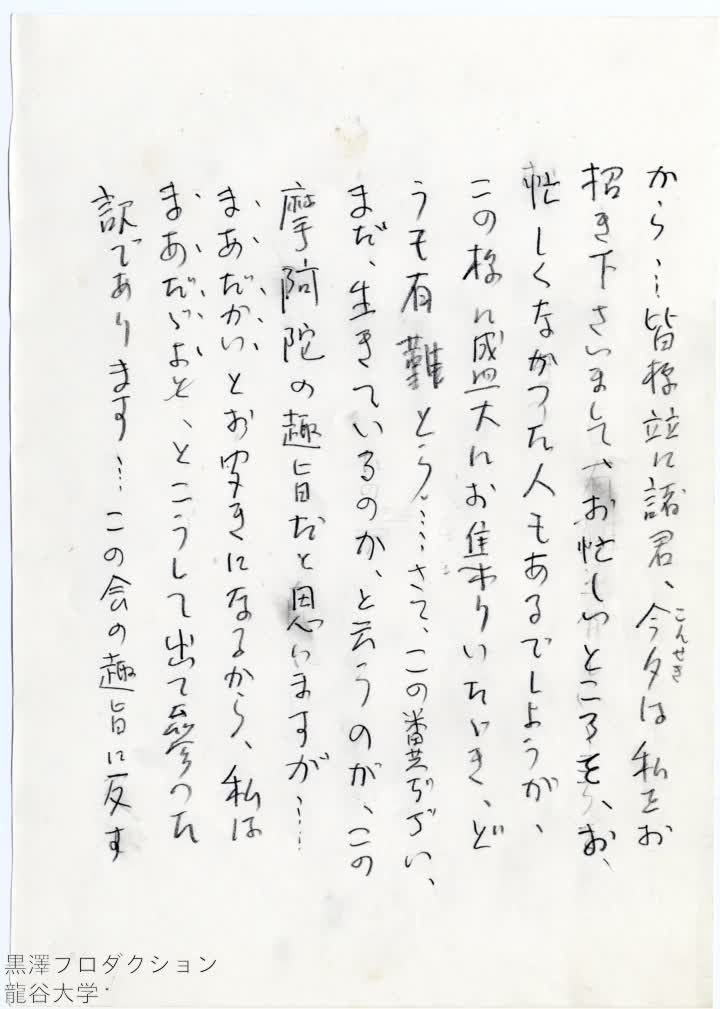 から…皆様並に諸君、今夕は私をお
こんせき
招き下さいまして、お忙しいところを、お、
忙しくなかつた人もあるでしようが、
この様に盛大にお集りいたゞき、ど
うも有難とう……さて、この糞ぢゞい、
まだ、生きているのか、と云うのが、この
摩阿陀の趣旨だと思いますが……
まあだかいとお聞きになるから、私は
まあだゞよと、とこうして出て参つた
訳であります…この会の趣旨に反す
黒澤プロダクション
龍谷大学